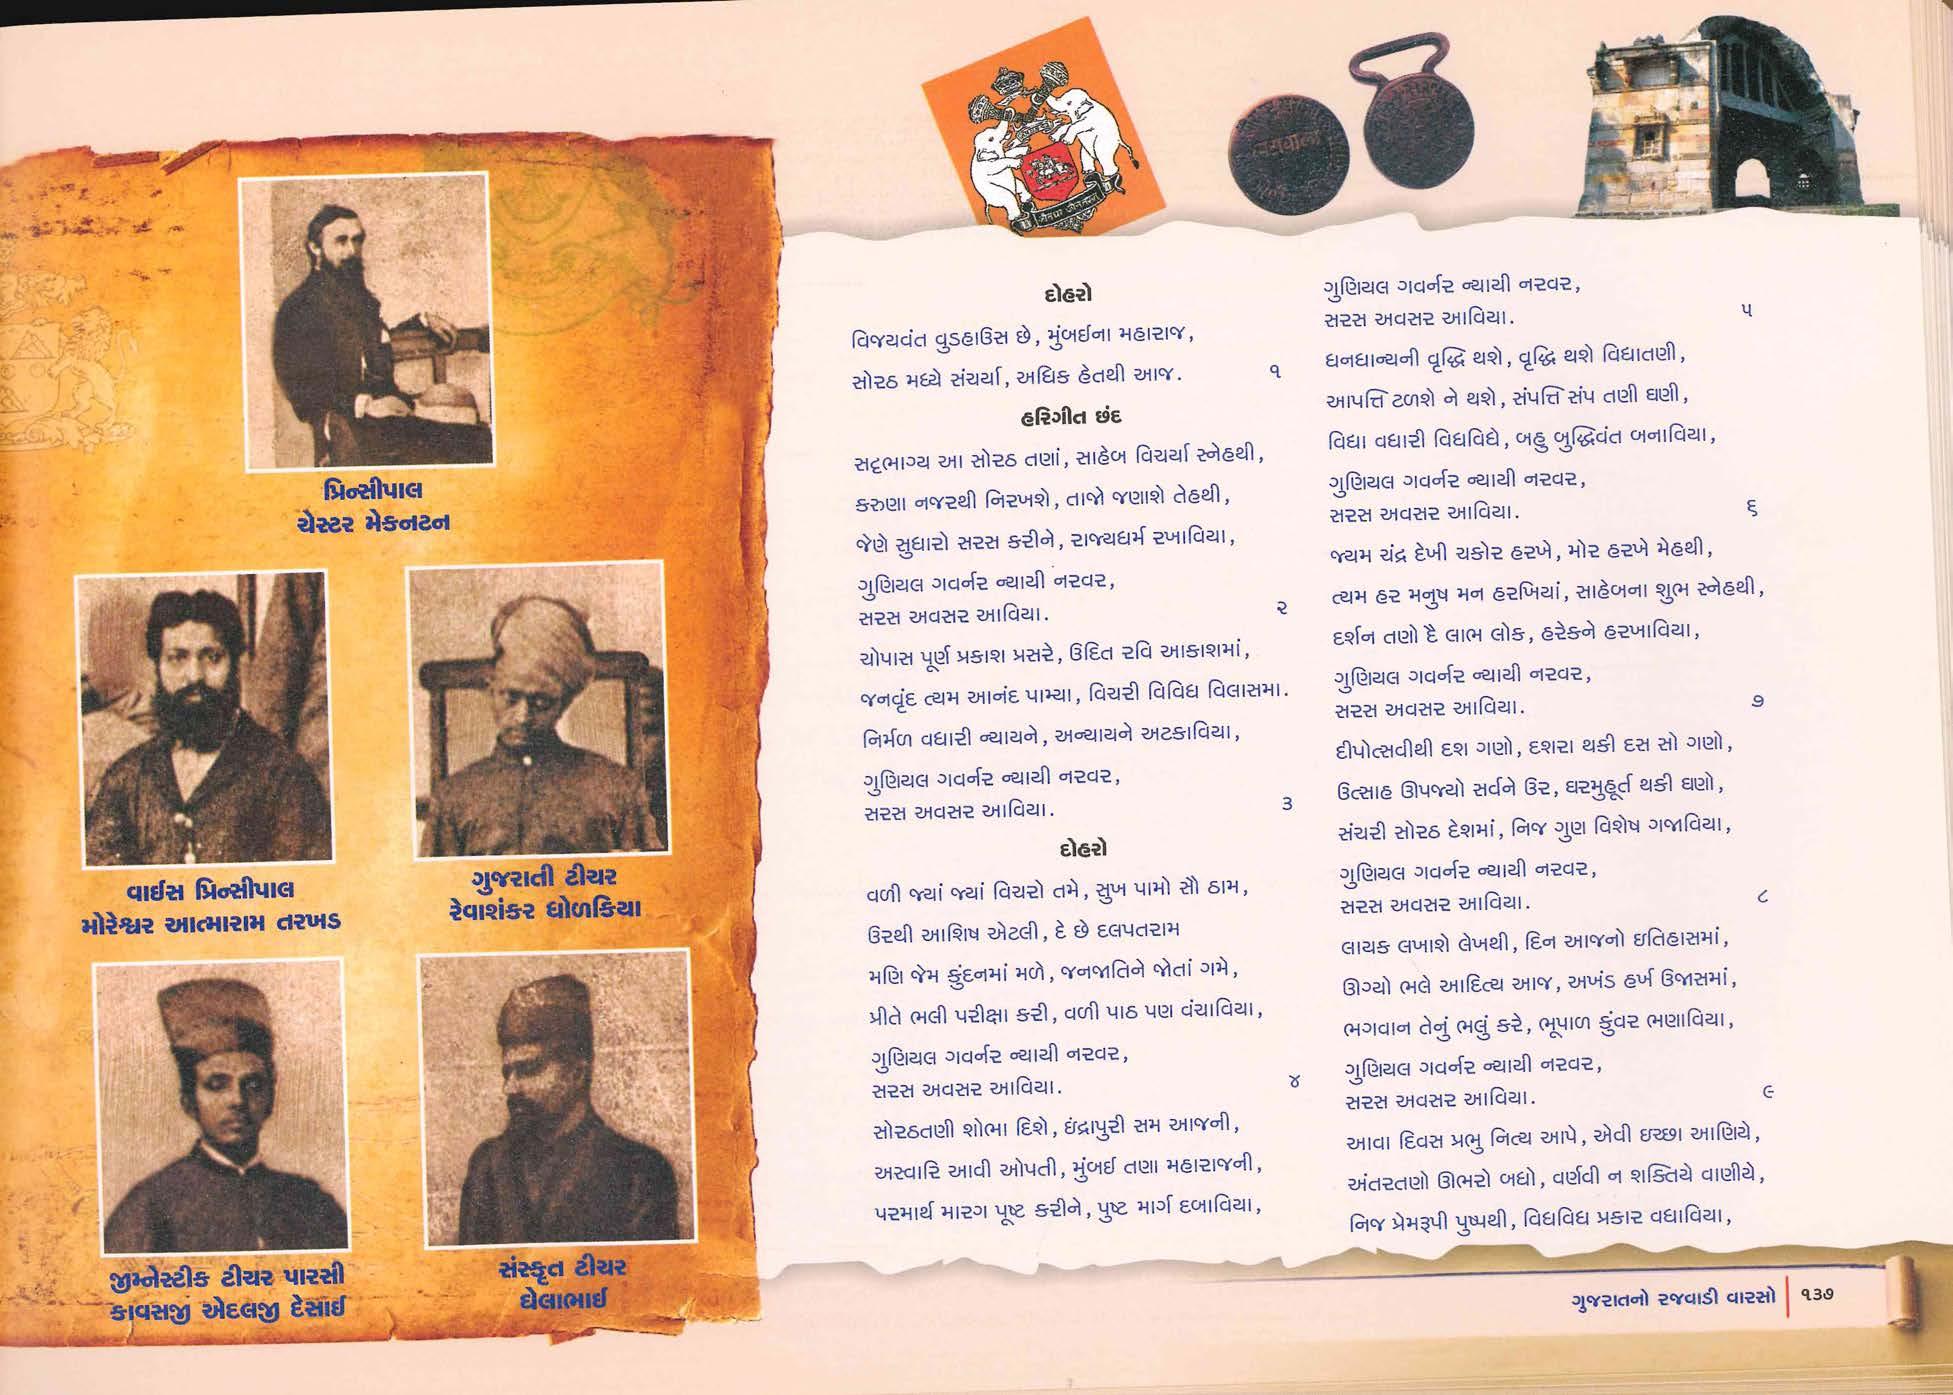 પ્રિન્સીપાલ
ચેસ્ટર મેકનટન
વાઈસ પ્રિન્સીપાલ
મોરેશ્વર આત્મારામ તરખડ
ગુજરાતી ટીચર
રેવાશંકર ધોળકિયા
જીમ્નેસ્ટીક ટીચર પારસી
કાવસજી એદલજી દેસાઈ
સંસ્કૃત ટીચર
ઘેલાભાઈ
દોહરો
વિજયવંત વુડહાઉસ છે, મુંબઈના મહારાજ,
સોરઠ મધ્યે સંચર્યા, અધિક હેતથી આજ. ૧
હરિગીત છંદ
સદ્દભાગ્ય આ સોરઠ તણાં, સાહેબ વિચર્યા સ્નેહથી,
કરુણા નજરથી નિરખશે, તાજો જણાશે તેહથી,
જેણે સુધારો સરસ કરીને, રાજ્યધર્મ રખાવિયા,
ગુણિયલ ગવર્નર ન્યાયી નરવર,
સરસ અવસર આવિયા. ૨
ચોપાસ પૂર્ણ પ્રકાશ પ્રસરે, ઉદિત રવિ આકાશમાં,
જનવૃંદ ત્યમ આનંદ પામ્યા, વિચરી વિવિધ વિલાસમા.
નિર્મળ વધારી ન્યાયને, અન્યાયને અટકાવિયા,
ગુણિયલ ગવર્નર ન્યાયી નરવર,
સરસ અવસર આવિયા. ૩
દોહરો
વળી જ્યાં જ્યાં વિચરો તમે, સુખ પામો સૌ ઠામ,
ઉરથી આશિષ એટલી, દે છે દલપતરામ
મણિ જેમ કુંદનમાં મળે, જનજાતિને જોતાં ગમે,
પ્રીતે ભલી પરીક્ષા કરી, વળી પાઠ પણ વંચાવિયા,
ગુણિયલ ગવર્નર ન્યાયી નરવર,
સરસ અવસર આવિયા. ૪
સોરઠતણી શોભા દિશે, ઇંદ્રાપુરી સમ આજની,
અસ્વારિ આવી ઓપતી, મુંબઈ તણા મહારાજની,
પરમાર્થ મારગ પૂષ્ટ કરીને, પુષ્ટ માર્ગ દબાવિયા,
ગુણિયલ ગવર્નર ન્યાયી નરવર,
સરસ અવસર આવિયા. ૫
ધનધાન્યની વૃદ્ધિ થશે, વૃદ્ધિ થશે વિદ્યાતણી,
આપત્તિ ટળશે ને થશે, સંપત્તિ સંપ તણી ઘણી,
વિદ્યા વધારી વિધવિધે, બહુ બુદ્ધિવંત બનાવિયા,
ગુણિયલ ગવર્નર ન્યાયી નરવર,
સરસ અવસર આવિયા. ૬
જ્યમ ચંદ્ર દેખી ચકોર હરખે, મોર હરખે મેહથી,
ત્યમ હર મનુષ મન હરખિયાં, સાહેબના શુભ સ્નેહથી,
દર્શન તણો દૈ લાભ લોક, હરેકને હરખાવિયા,
ગુણિયલ ગવર્નર ન્યાયી નરવર,
સરસ અવસર આવિયા. ૭
દીપોત્સવીથી દશ ગણો, દશરા થકી દસ સો ગણો,
ઉત્સાહ ઊપજ્યો સર્વને ઉર, ઘરમુહૂર્ત થકી ઘણો,
સંચરી સોરઠ દેશમાં, નિજ ગુણ વિશેષ ગજાવિયા,
ગુણિયલ ગવર્નર ન્યાયી નરવર,
સરસ અવસર આવિયા. ૮
લાયક લખાશે લેખથી, દિન આજનો ઇતિહાસમાં,
ઊગ્યો ભલે આદિત્ય આજ, અખંડ હર્ખ ઉજાસમાં,
ભગવાન તેનું ભલું કરે, ભૂપાળ કુંવર ભણાવિયા,
ગુણિયલ ગવર્નર ન્યાયી નરવર,
સરસ અવસર આવિયા. ૯
આવા દિવસ પ્રભુ નિત્ય આપે, એવી ઇચ્છા આણિયે,
અંતરતણો ઊભરો બધો, વર્ણવી ન શક્તિયે વાણીયે,
નિજ પ્રેમરૂપી પુષ્પથી, વિધવિધ પ્રકાર વધાવિયા,
ગુજરાતનો રજવાડી વારસો ૧૩૭